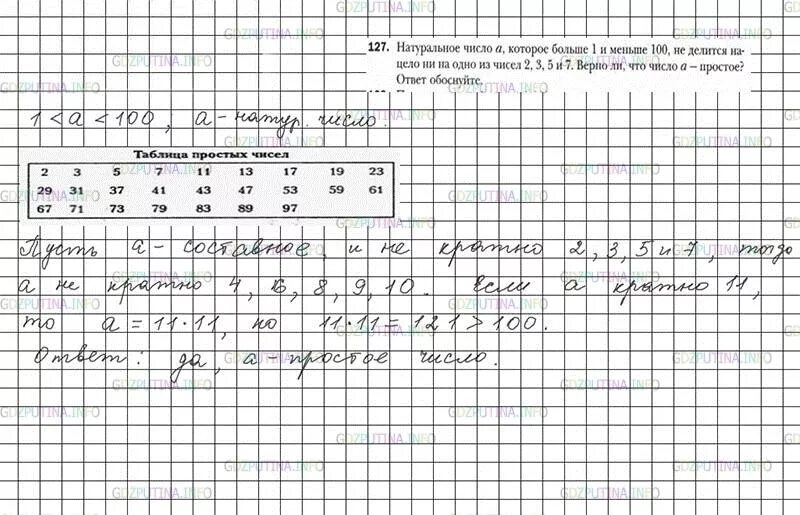 GDZPUTINA.INFO
127. Натуральное число a, которое больше 1 и меньше 100, не делится на-
цело ни на одно из чисел 2, 3, 5 и 7. Верно ли, что число a – простое?
Ответ обоснуйте.
1 < a < 100 ; a - натур. число.
Таблица простых чисел
2 3 5 7 11 13 17 19 23
29 31 37 41 43 47 53 59 61
67 71 73 79 83 89 97
Пусть a - составное, и не кратно 2, 3, 5 и 7, тогда
a не кратно 4, 6, 8, 9, 10. Если a кратно 11,
то a = 11·11, но 11·11 = 121 > 100.
Ответ: да, a - простое число.